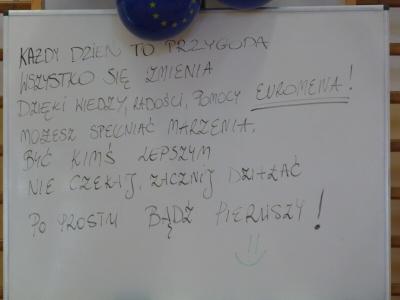 KAŻDY DZIEŃ TO PRZYGODA
WSZYSTKO SIĘ ZMIENIA
DZIĘKI WIEDZY, RADOŚCI, POMOCY EUROMENA!
MOŻESZ SPEŁNIAĆ MARZENIA.
BYĆ KIMŚ LEPSZYM
NIE CZEKAJ, ZACZNIJ DZIAŁAĆ
PO PROSTU BĄDŹ PIERWSZY!